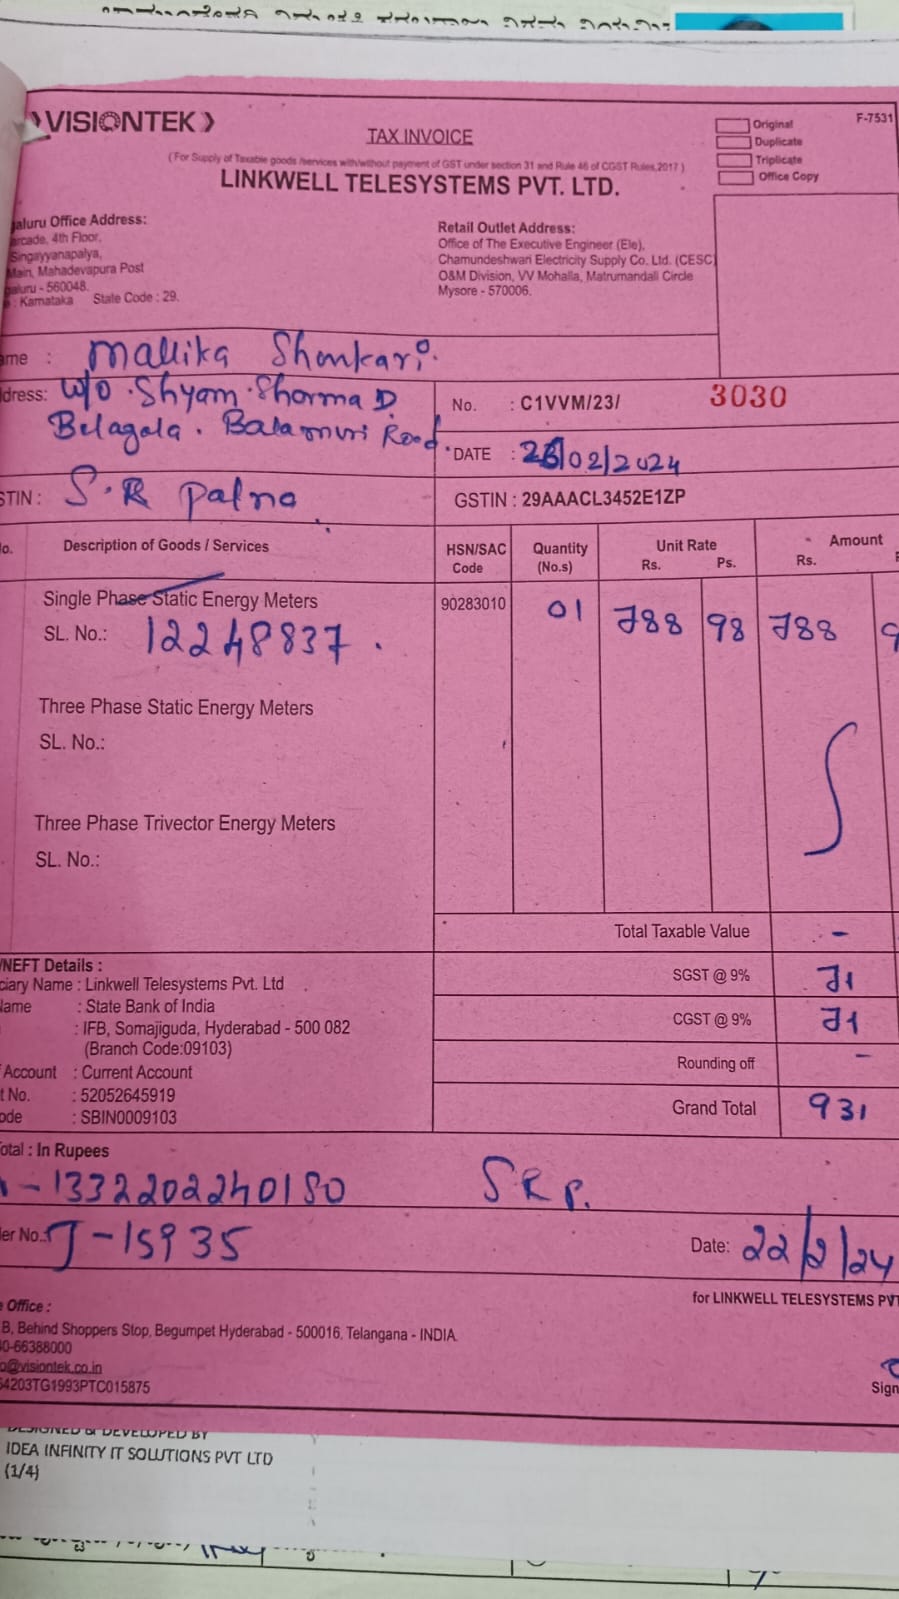 VISIONTEK
TAX INVOICE
(For Supply of Taxable goods /services with/without payment of GST under section 31 and Rule 46 of CGST Rules,2017)
LINKWELL TELESYSTEMS PVT. LTD.
F-7531
Original
Duplicate
Triplicate
Office Copy
aluru Office Address:
arcade, 4th Floor,
Singayyanapalya,
Main, Mahadevapura Post
galuru - 560048.
: Karnataka State Code : 29.
Retail Outlet Address:
Office of The Executive Engineer (Ele),
Chamundeshwari Electricity Supply Co. Ltd. (CESC)
O&M Division, VV Mohalla, Matrumandali Circle
Mysore - 570006.
ame : Mallika Shankari.
dress: W/O . Shyam . Sharma D
Belagola . Balamuri Road.
No. : C1VVM/23/ 3030
DATE : 26/02/2024
STIN : S.R Palna
GSTIN : 29AAACL3452E1ZP
o. Description of Goods / Services HSN/SAC Code Quantity (No.s) Unit Rate Rs. Ps. Amount Rs.
Single Phase Static Energy Meters 90283010 01 788 98 788 9
SL. No.: 12248837.
Three Phase Static Energy Meters
SL. No.:
Three Phase Trivector Energy Meters
SL. No.:
Total Taxable Value -
/NEFT Details :
ciary Name : Linkwell Telesystems Pvt. Ltd
Name : State Bank of India
: IFB, Somajiguda, Hyderabad - 500 082
(Branch Code:09103)
Account : Current Account
t No. : 52052645919
ode : SBIN0009103
SGST @ 9% 71
CGST @ 9% 71
Rounding off -
Grand Total 931
otal : In Rupees
- 1332202240150 SRP.
er No.: J-15935
Date: 22/2/24
for LINKWELL TELESYSTEMS PVT
e Office :
B, Behind Shoppers Stop, Begumpet Hyderabad - 500016, Telangana - INDIA.
40-66388000
o@visiontek.co.in
64203TG1993PTC015875
Sign
DESIGNED & DEVELOPED BY
IDEA INFINITY IT SOLUTIONS PVT LTD
(1/4)